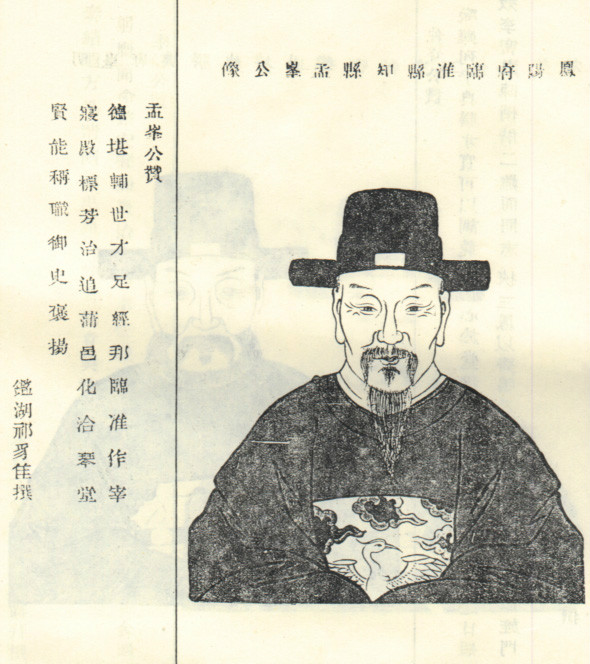 鳳陽府臨淮縣知縣孟峯公像
孟峯公贊
德堪輔世才足經邦臨准作宰
寢殿標芳治追蒲邑化洽琴堂
賢能稱職御史褒揚
鑑湖祁豸佳撰